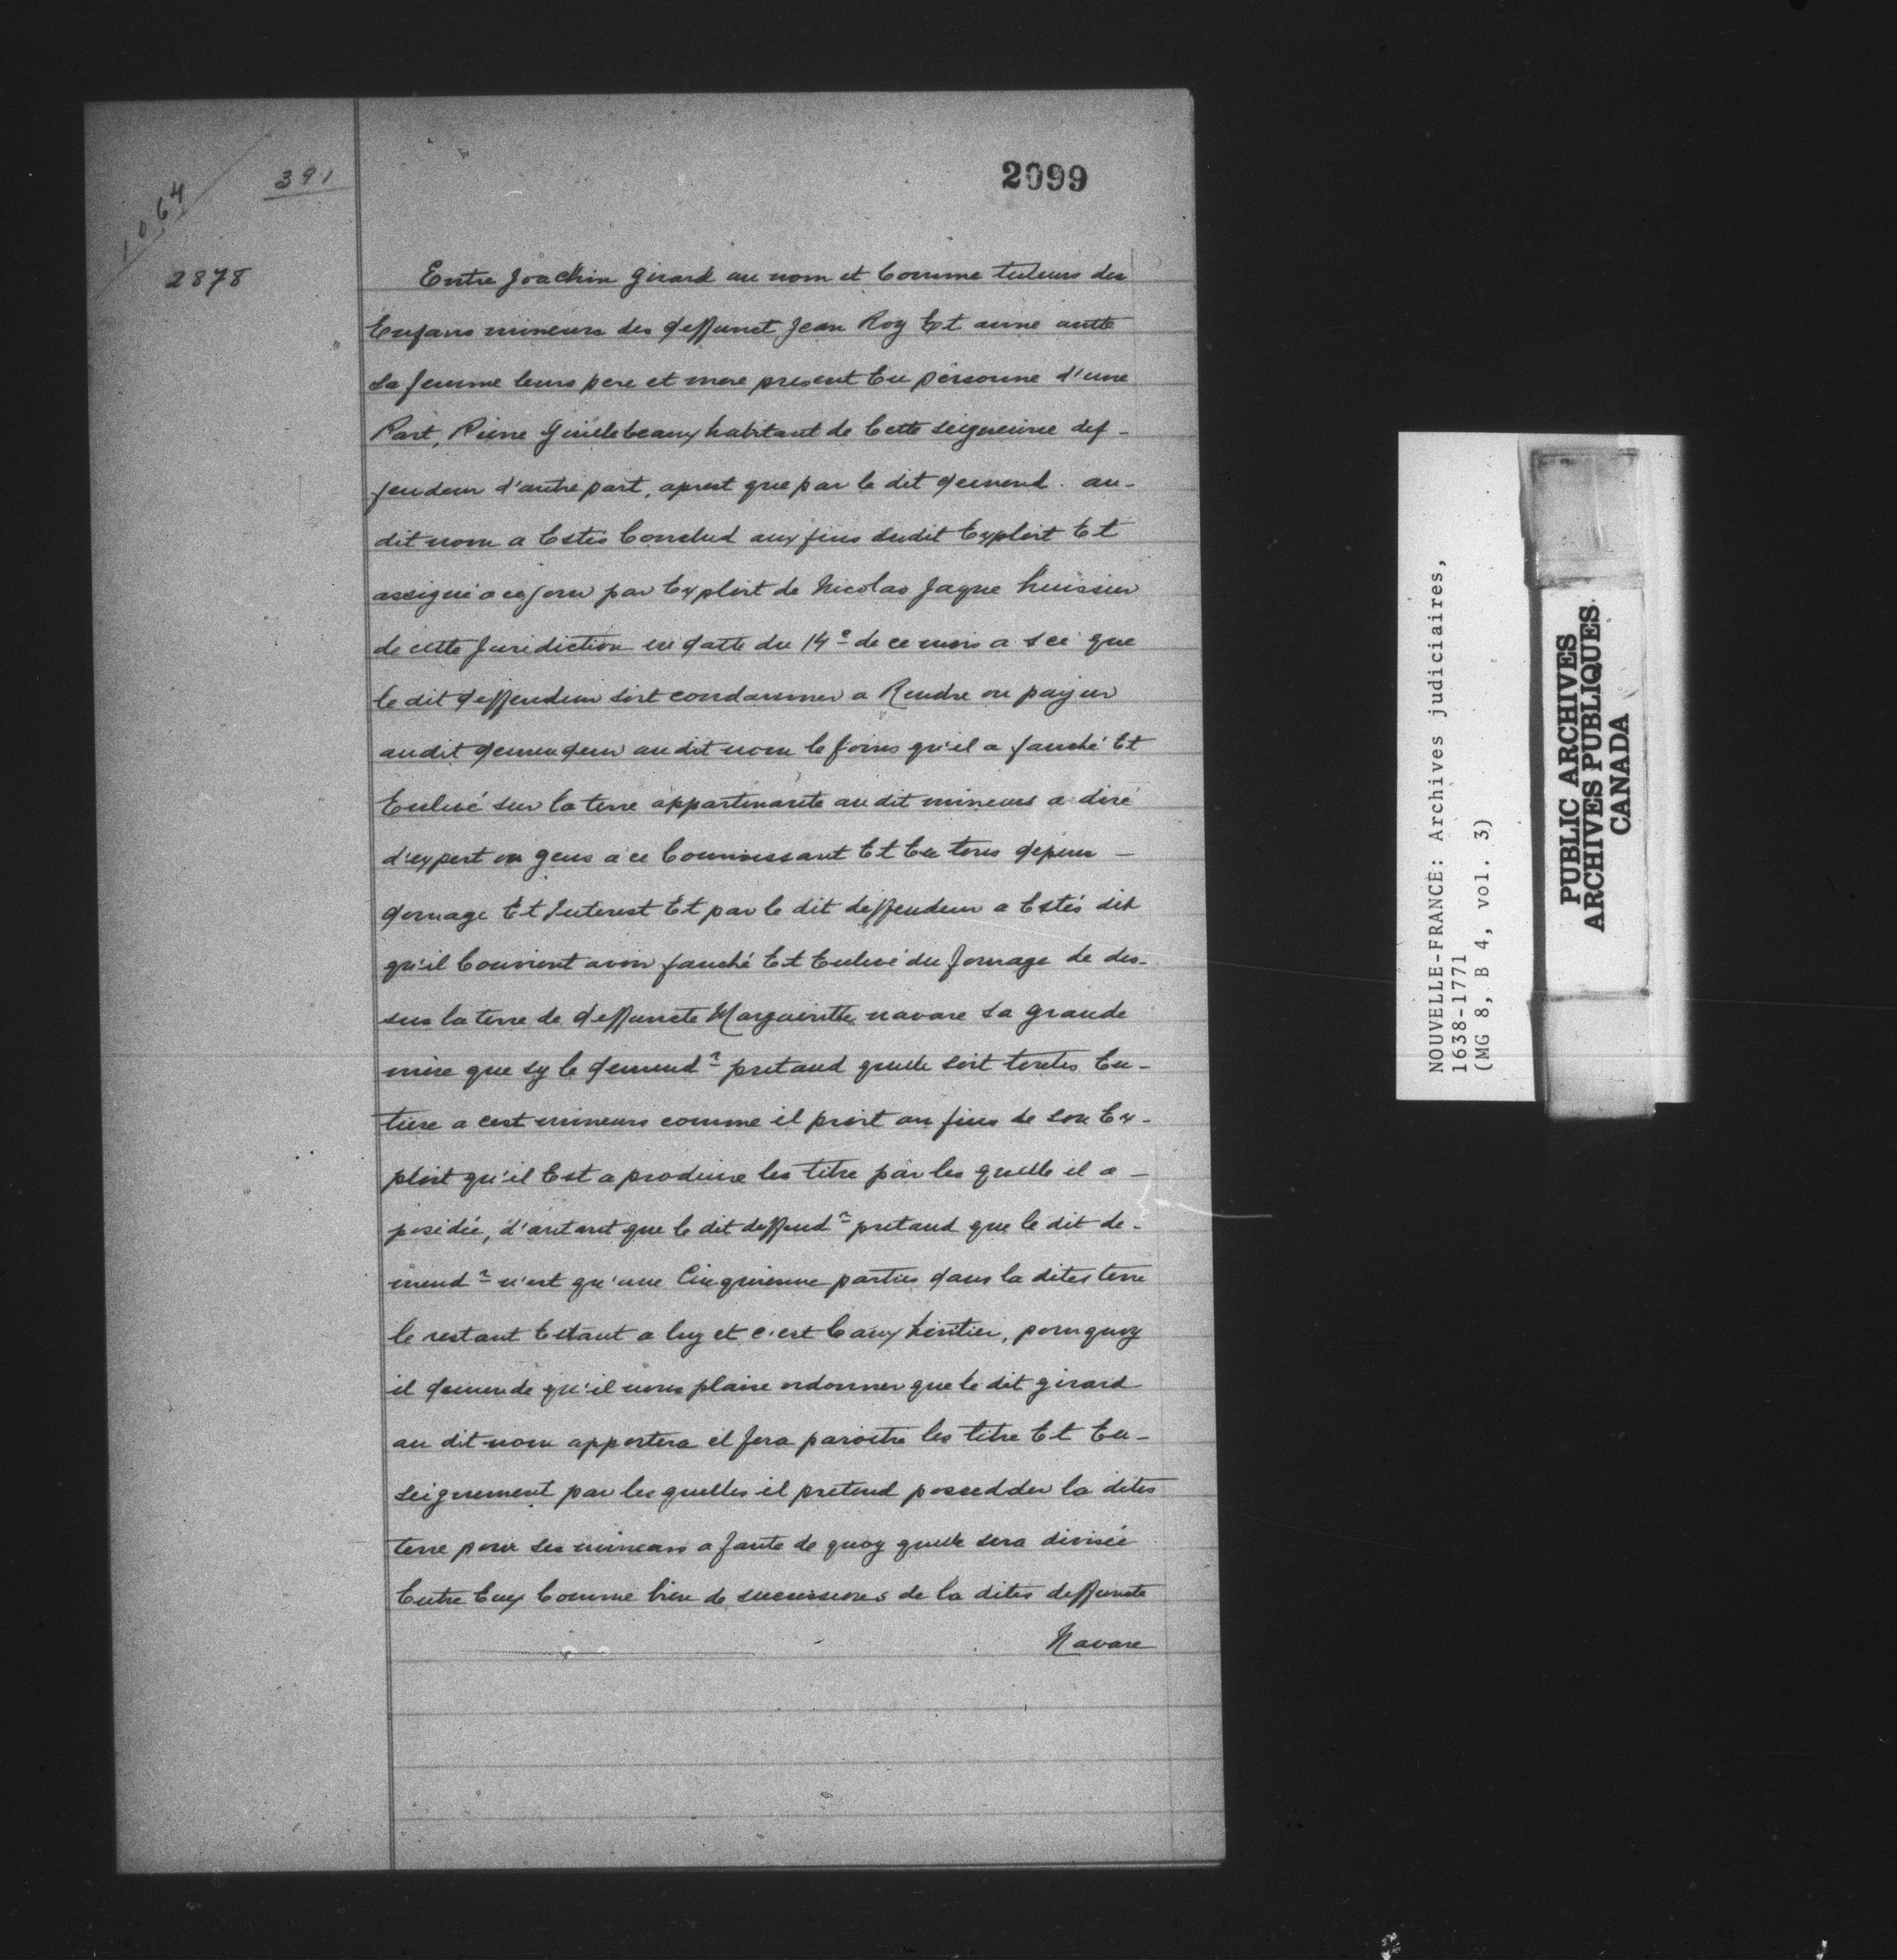 2099
391
1064
2878
Entre Joachin girard au nom et Comme tuteurs des
Enfans mineurs des deffunct Jean Roy Et anne autte
Sa femme leurs pere et mere present En personne d'une
Part, Pierre Guillebeaux habitant de Cette seigneurie def-
fendeur d'autre part, aprest que par le dit demend. au-
dit nom a Estés Conclud aux fins dudit Exploit Et
assigné a ce jour par Exploit de Nicolas Jaque huissier
de cette Juridiction en datte du 14e de ce mois a sce que
le dit deffendeur soit condammer a Rendre ou payer
audit demendeur audit nom le foins qu'il a fauché Et
Enlevé sur la terre appartenante audit mineurs a diré
d'expert ou gens a ce Connoissant Et En tous depens -
domage Et Interest Et par le dit deffendeur a Estés dit
qu'il Convient avoir fauché Et Enlevé du fourage de des-
sus la terre de deffuncte Margueritte navare Sa grande
mère que sy le demendr pretand quelle soit toutes En-
tiere a cest mineurs comme il proit au fins de son Ex-
ploit qu'il Est a produire les titre par les quelle il a -
posédée, d'autant que le dit deffendr pretand que le dit de-
mendr n'est qu'une Cinquienne parties dans la dites terre
le restant Estant a luy et c'est Eaux héritier, pourquoy
il demende qu'il nous plaise ordonner que le dit girard
au dit nom apportera et fera paroitre les titre Et En-
seignement par les quelles il prétend possedder la dites
terre pour ses mineurs a faute de quoy quelle sera divisée
Entre Eux Comme bien de successions de la dites deffuncte
Navare
NOUVELLE-FRANCE: Archives judiciaires,
1638-1771
(MG 8, B 4, vol. 3)
PUBLIC ARCHIVES
ARCHIVES PUBLIQUES
CANADA